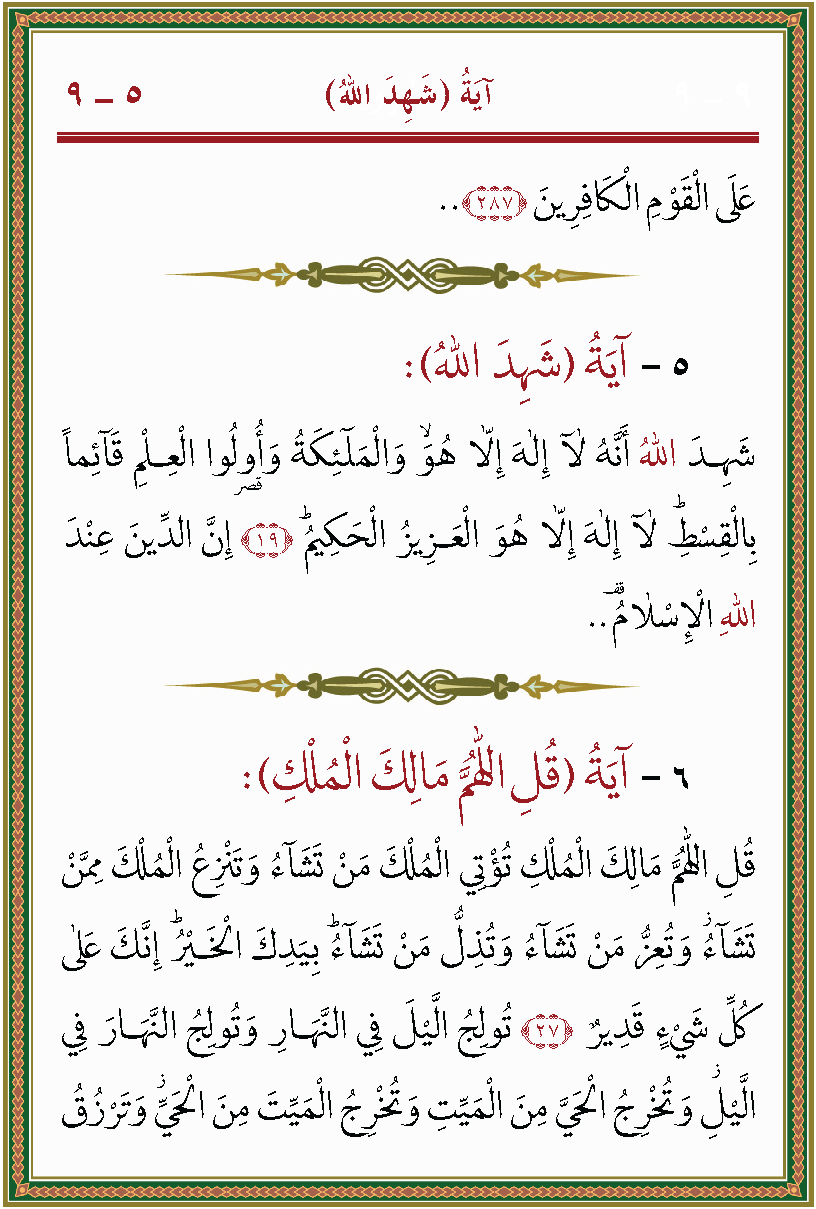 آيَةُ (شَهِدَ اللهُ) ٥ – ٩
عَلَى الْقَوْمِ الْكَافِرِينَ ﴿٢٨٧﴾..
٥ – آيَةُ (شَهِدَ اللهُ):
شَهِـدَ اللهُ أَنَّهُ لَآ إِلٰهَ إِلَّا هُوَۙ وَالْمَلَٓئِكَةُ وَأُولُوا الْعِـلْمِ قَآئِماً
قصر
بِالْقِسْطِۜ لَآ إِلٰهَ إِلَّا هُوَ الْعَـزِيزُ الْحَكِيمُۜ ﴿١٩﴾ إِنَّ الدِّينَ عِنْدَ
اللهِ الْإِسْلَامُ۠..
٦ – آيَةُ (قُلِ اللّٰهُمَّ مَالِكَ الْمُلْكِ):
قُلِ اللّٰهُمَّ مَالِكَ الْمُلْكِ تُؤْتِي الْمُلْكَ مَنْ تَشَآءُ وَتَنْزِعُ الْمُلْكَ مِمَّنْ
تَشَآءُۘ وَتُعِزُّ مَنْ تَشَآءُ وَتُذِلُّ مَنْ تَشَآءُۜ بِيَدِكَ الْخَـيْرُۜ إِنَّكَ عَلٰى
كُلِّ شَيْءٍ قَدِيرٌ ﴿٢٧﴾ تُولِجُ الَّيْلَ فِي النَّهَـارِ وَتُولِجُ النَّهَـارَ فِي
الَّيْلِ وَتُخْرِجُ الْحَيَّ مِنَ الْمَيِّتِ وَتُخْرِجُ الْمَيِّتَ مِنَ الْحَيِّ وَتَرْزُقُ